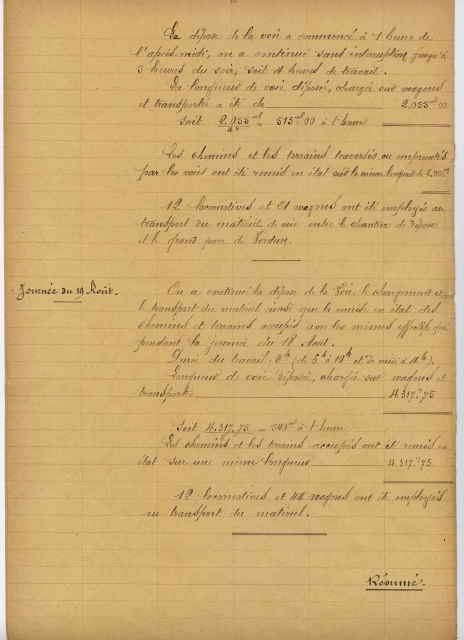 La dépose de la voie a commencé à 1 heure de
l'après midi, on a continué sans interruption jusqu'à
5 heures du soir, soit 4 heures de travail.
La longueur de voie déposée, chargée sur wagons
et transportée a été de 2.055ml00
soit 2.055ml / 4h = 513ml00 à l'heure
Les chemins et les terrains traversés ou empruntés
par les voies ont été remis en état sur la même longueur de 2.055m
12 locomotives et 21 wagons ont été employés au
transport du matériel de voie entre le chantier de dépose
et le grand parc de Verdun.
Journée du 19 Août.
On a continué la dépose de la Voie, le chargement et
le transport du matériel ainsi que la remise en état des
chemins et terrains occupés avec les mêmes effectifs que
pendant la journée du 18 Août.
Durée du travail : 8h (de 6h à 10h et de midi à 4h).
Longueur de voie déposée, chargée sur wagons et
transportée 4.317m75
Soit 4.317,75 = 541ml à l'heure
Les chemins et les terrains occupés ont été remis en
état sur une même longueur 4.317m75
12 locomotives et 44 wagons ont été employés
au transport du matériel.
Résumé.